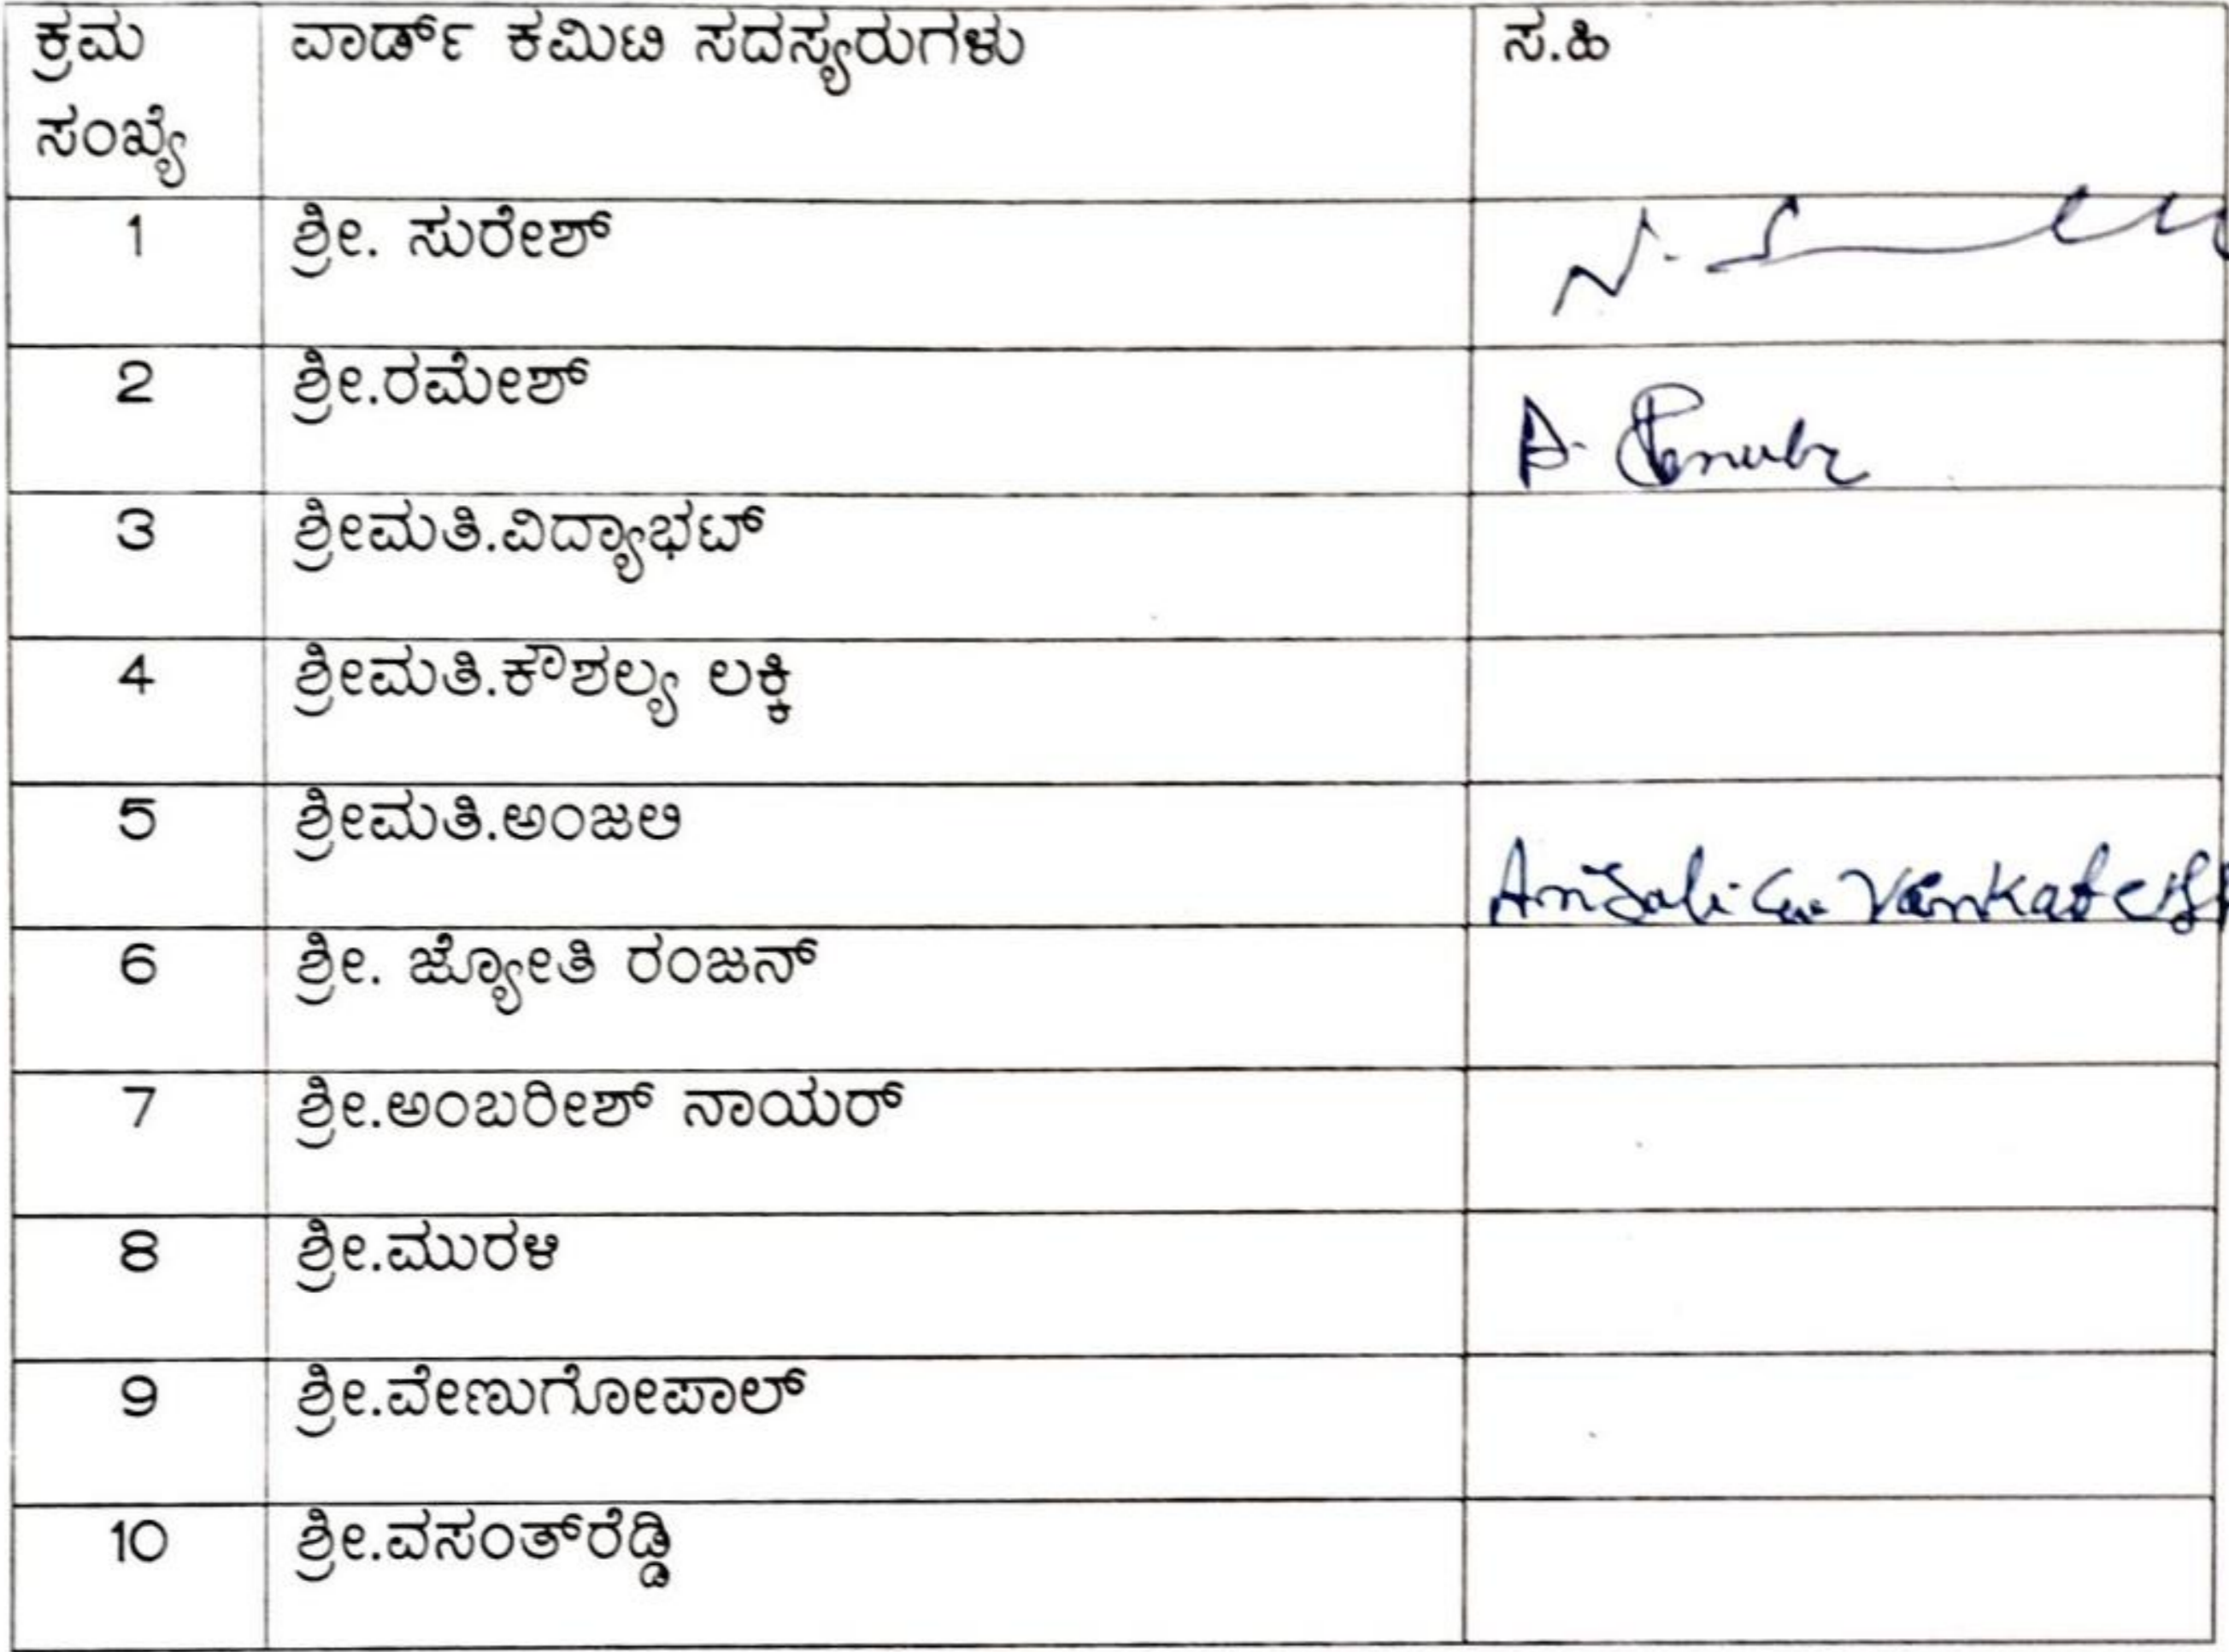 ಕ್ರಮ ಸಂಖ್ಯೆ ವಾರ್ಡ್ ಕಮಿಟಿ ಸದಸ್ಯರುಗಳು ಸ.ಹಿ
1 ಶ್ರೀ. ಸುರೇಶ್
2 ಶ್ರೀ.ರಮೇಶ್
3 ಶ್ರೀಮತಿ.ವಿದ್ಯಾಭಟ್
4 ಶ್ರೀಮತಿ.ಕೌಶಲ್ಯ ಲಕ್ಕಿ
5 ಶ್ರೀಮತಿ.ಅಂಜಲಿ Anjali
6 ಶ್ರೀ. ಜ್ಯೋತಿ ರಂಜನ್
7 ಶ್ರೀ.ಅಂಬರೀಶ್ ನಾಯರ್
8 ಶ್ರೀ.ಮುರಳಿ
9 ಶ್ರೀ.ವೇಣುಗೋಪಾಲ್
10 ಶ್ರೀ.ವಸಂತ್‌ರೆಡ್ಡಿ